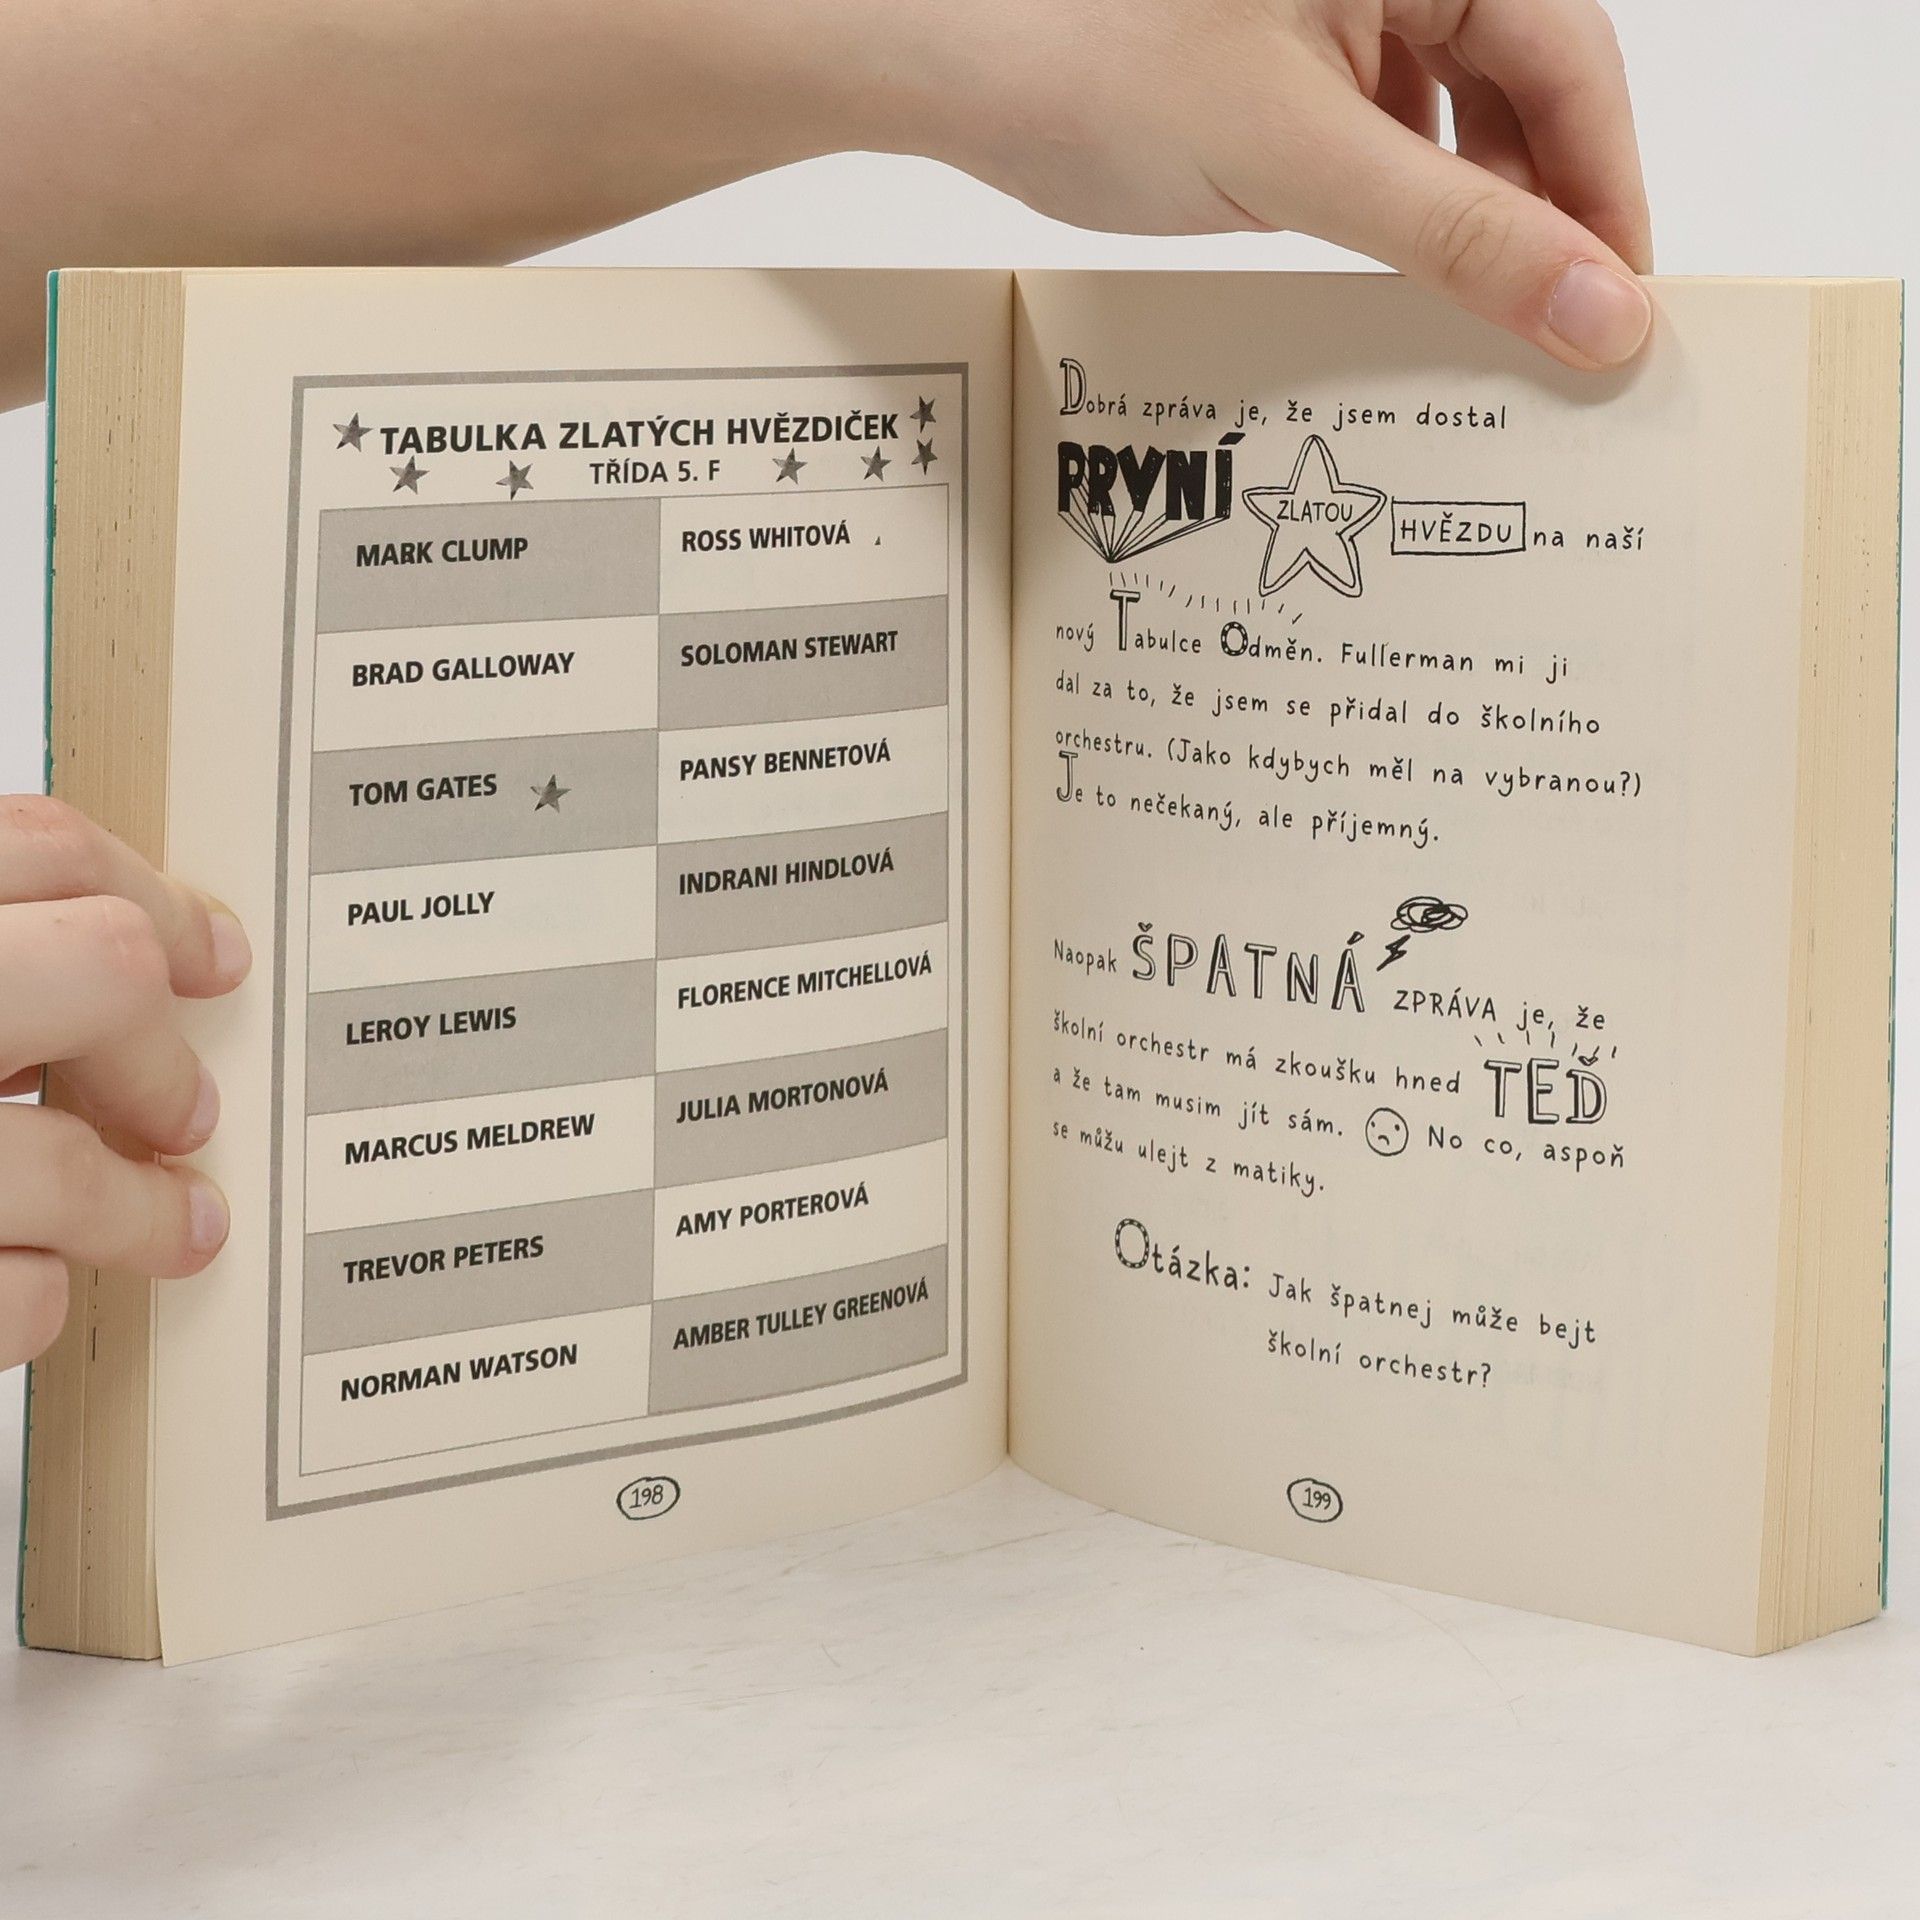 TABULKA ZLATÝCH HVĚZDIČEK
TŘÍDA 5. F
MARK CLUMP
ROSS WHITOVÁ
BRAD GALLOWAY
SOLOMAN STEWART
TOM GATES
PANSY BENNETOVÁ
PAUL JOLLY
INDRANI HINDLOVÁ
LEROY LEWIS
FLORENCE MITCHELLOVÁ
MARCUS MELDREW
JULIA MORTONOVÁ
TREVOR PETERS
AMY PORTEROVÁ
NORMAN WATSON
AMBER TULLEY GREENOVÁ
198
Dobrá zpráva je, že jsem dostal
PRVNÍ ZLATOU HVĚZDU na naší
nový Tabulce Odměn. Fullerman mi ji
dal za to, že jsem se přidal do školního
orchestru. (Jako kdybych měl na vybranou?)
Je to nečekaný, ale příjemný.
Naopak ŠPATNÁ ZPRÁVA je, že
školní orchestr má zkoušku hned TEĎ
a že tam musim jít sám. No co, aspoň
se můžu ulejt z matiky.
Otázka: Jak špatnej může bejt
školní orchestr?
199